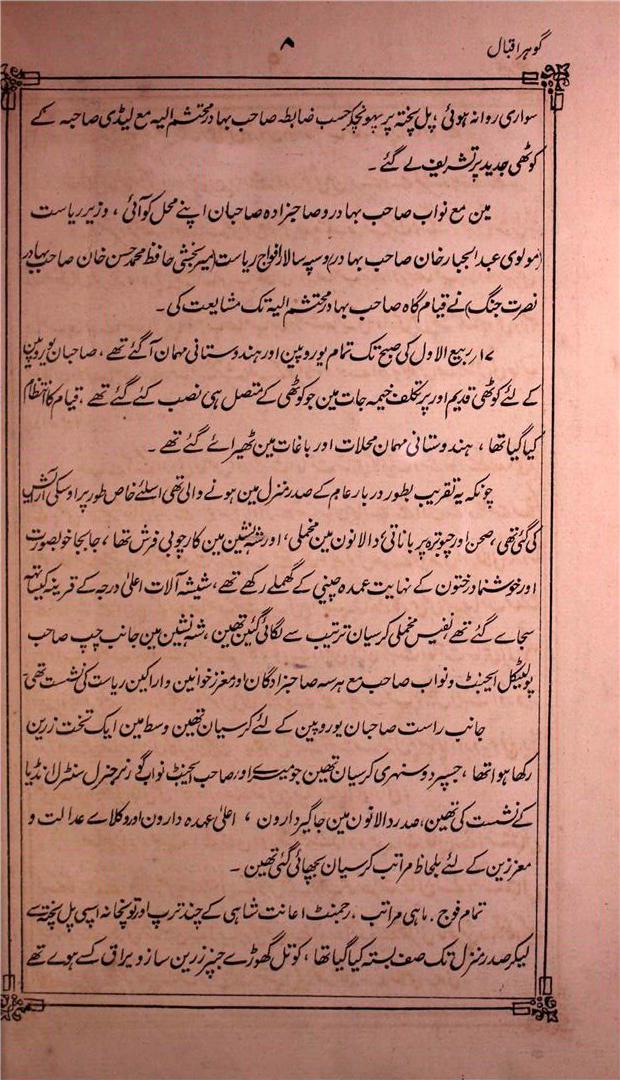 گوہر اقبال
۸
سواری روانہ ہوئی ، پل پختہ پر پہونچکر حسب ضابطہ صاحب بہادر محتشم الیہ مع لیڈی صاحبہ کے
کوٹھی جدید پر تشریف لے گئے ۔
مین مع نواب صاحب بہادر و صاحبزادہ صاحبان اپنے محل کو آئی ، وزیر ریاست
(مولوی عبدالجبار خان صاحب بہادر) و سپہ سالار افواج ریاست (میر بخشی حافظ محمد حسن خان صاحب بہادر
نصرت جنگ) نے قیام گاہ صاحب بہادر محتشم الیہ تک مشایعت کی ۔
۱۷ ربیع الاول کی صبح تک تمام یوروپین اور ہندوستانی مہمان آگئے تھے ، صاحبان یوروپین
کے لئے کوٹھی قدیم اور پر تکلف خیمہ جات مین جو کوٹھی کے متصل ہی نصب کئے گئے تھے ، قیام کا انتظام
کیا گیا تھا ، ہندوستانی مہمان محلات اور باغات مین ٹھیرائے گئے تھے ۔
چونکہ یہ تقریب بطور دربار عام کے صدر منزل مین ہونے والی تھی اسلئے خاص طور پر اوسکی آرایش
کی گئی تھی ، صحن اور چبوترہ پر باناتی ، دالانون مین مخملی ، اور شہ نشین مین کارچوبی فرش تھا ، جابجا خوبصورت
اور خوشنما درختون کے نہایت عمدہ چینی کے گھملے رکھے تھے ، شیشہ آلات اعلیٰ درجہ کے قرینہ کیساتھ
سجاے گئے تھے نفیس مخملی کرسیان ترتیب سے لگائی گئین تھین ، شہ نشین مین جانب چپ صاحب
پولیٹیکل ایجنٹ و نواب صاحب مع ہرسہ صاحبزادگان اور معزز خوانین و اراکین ریاست کی نشست تھی
جانب راست صاحبان یوروپین کے لئے کرسیان تھین وسط مین ایک تخت زرین
رکھا ہوا تھا ، جسپر دو سنہری کرسیان تھین جو میرے اور صاحب ایجنٹ نواب گورنر جنرل سنٹرل انڈیا
کے نشست کی تھین ، صدر دالانون مین جاگیردارون ، اعلیٰ عہدہ دارون اور وکلاے عدالت و
معززین کے لئے بلحاظ مراتب کرسیان بچھائی گئی تھین ۔
تمام فوج ، ماہی مراتب ، رجمنٹ اعانت شاہی کے چند ترپ اور توپخانہ اسپی پل پختہ سے
لیکر صدر منزل تک صف بستہ کیا گیا تھا ، کوتل گھوڑے جنپر زرین ساز و یراق کسے ہوے تھے